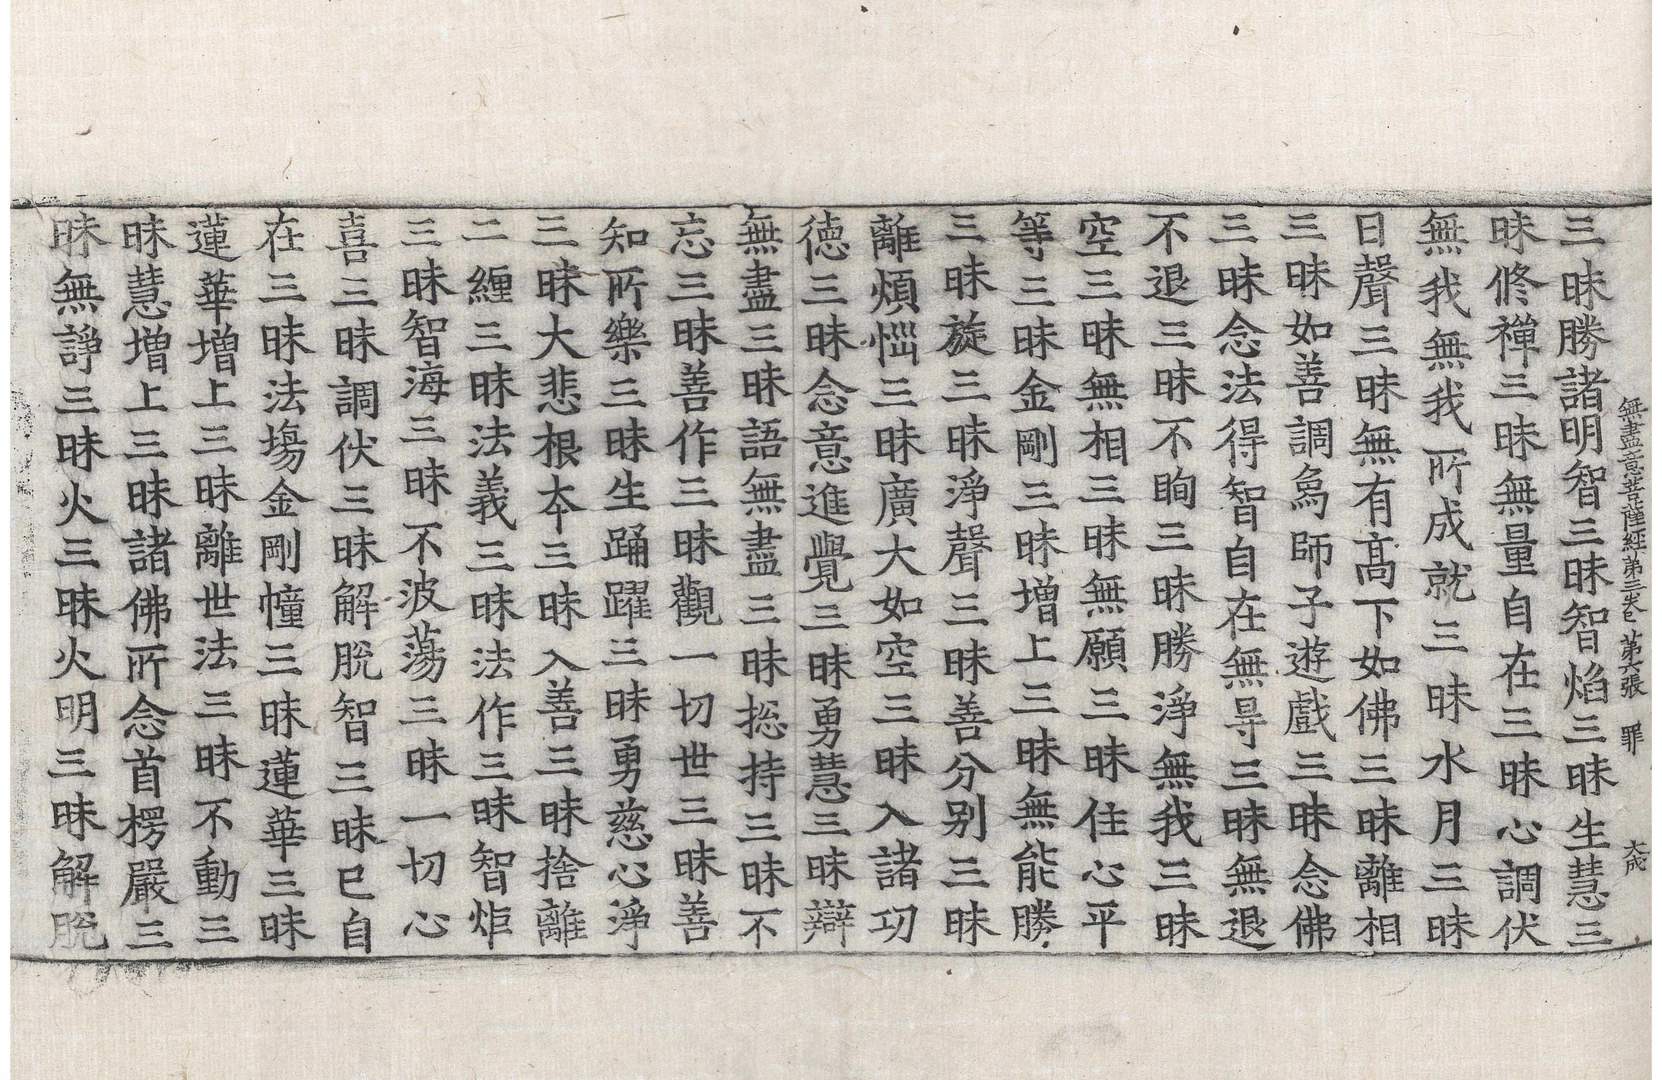 無盡意菩薩經第三卷 第六張 罪 大成
三昧勝諸明智三昧智焰三昧生慧三
昧修禪三昧無量自在三昧心調伏
無我無我所成就三昧水月三昧
日聲三昧無有高下如佛三昧離相
三昧如善調為師子遊戲三昧念佛
三昧念法得智自在無㝵三昧無退
不退三昧不眴三昧勝淨無我三昧
空三昧無相三昧無願三昧住心平
等三昧金剛三昧增上三昧無能勝
三昧旋三昧淨聲三昧善分別三昧
離煩惱三昧廣大如空三昧入諸功
德三昧念意進覺三昧勇慧三昧辯
無盡三昧語無盡三昧揔持三昧不
忘三昧善作三昧觀一切世三昧善
知所樂三昧生踊躍三昧勇慈心淨
三昧大悲根本三昧入善三昧捨離
二纏三昧法義三昧法作三昧智炬
三昧智海三昧不波蕩三昧一切心
喜三昧調伏三昧解脫智三昧已自
在三昧法塲金剛幢三昧蓮華三昧
蓮華增上三昧離世法三昧不動三
昧慧增上三昧諸佛所念首楞嚴三
昧無諍三昧火三昧火明三昧解脫